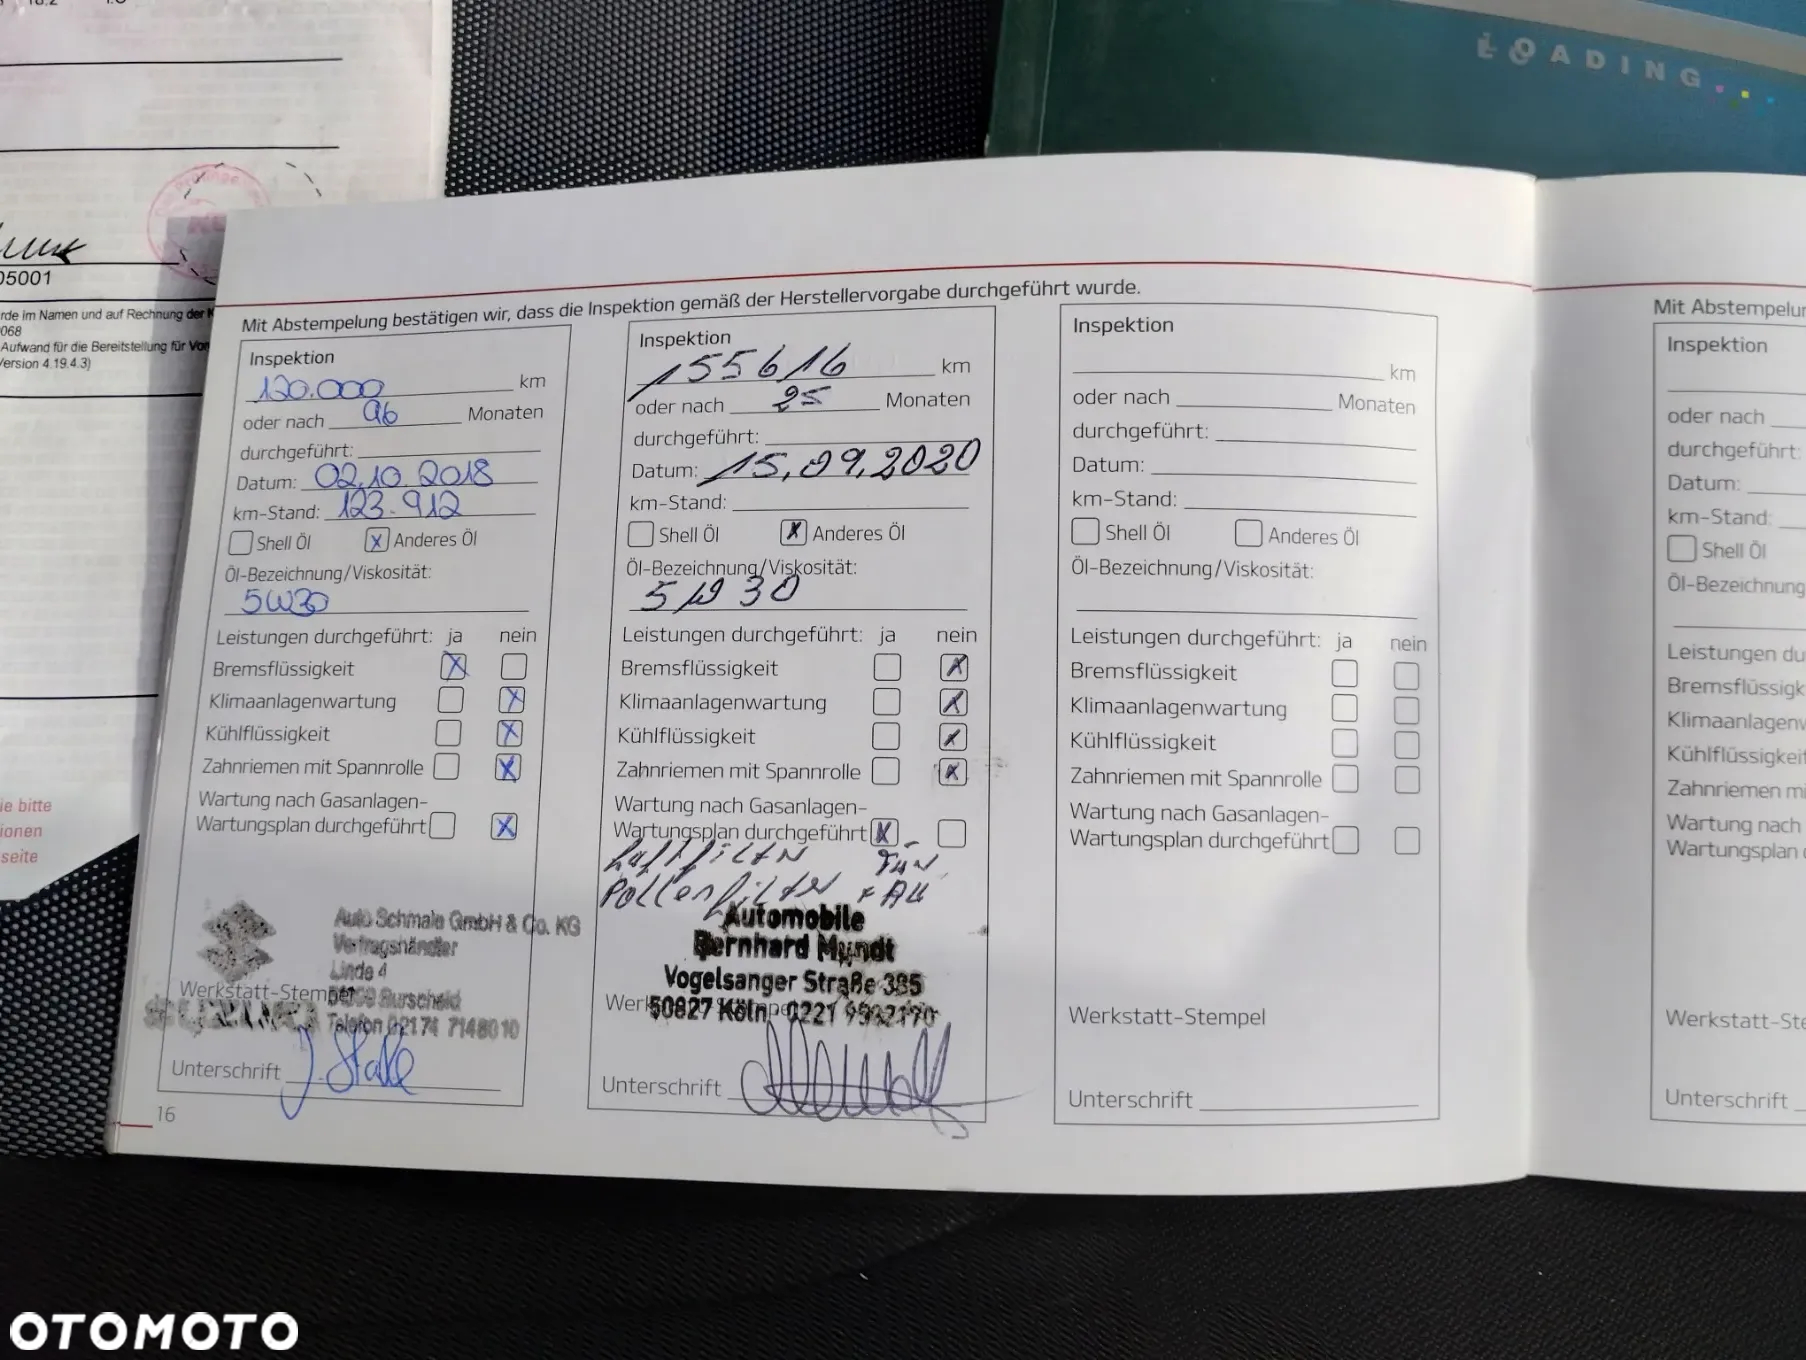 LOADING...
05001
rde im Namen und auf Rechnung der
068
Aufwand für die Bereitstellung für Von
Version 4.19.4.3)
ie bitte
ionen
seite
Mit Abstempelung bestätigen wir, dass die Inspektion gemäß der Herstellervorgabe durchgeführt wurde.
Inspektion
120.000 km
oder nach 96 Monaten
durchgeführt:
Datum: 02.10.2018
km-Stand: 123.912
Shell Öl x Anderes Öl
Öl-Bezeichnung/Viskosität:
5W30
Leistungen durchgeführt: ja nein
Bremsflüssigkeit x
Klimaanlagenwartung x
Kühlflüssigkeit x
Zahnriemen mit Spannrolle x
Wartung nach Gasanlagen-
Wartungsplan durchgeführt x
Auto Schmale GmbH & Co. KG
Vertragshändler
Linde 4
Werkstatt-Stempel Burscheid
SUZUKI Telefon 02174 7148010
Unterschrift
16
Inspektion
155616 km
oder nach 25 Monaten
durchgeführt:
Datum: 15.09.2020
km-Stand:
Shell Öl x Anderes Öl
Öl-Bezeichnung/Viskosität:
5W30
Leistungen durchgeführt: ja nein
Bremsflüssigkeit x
Klimaanlagenwartung x
Kühlflüssigkeit x
Zahnriemen mit Spannrolle x
Wartung nach Gasanlagen-
Wartungsplan durchgeführt x
Luftfilter TÜV
Pollenfilter + AU
Automobile
Bernhard Mundt
Vogelsanger Straße 385
50827 Köln
Unterschrift
Inspektion
km
oder nach Monaten
durchgeführt:
Datum:
km-Stand:
Shell Öl Anderes Öl
Öl-Bezeichnung/Viskosität:
Leistungen durchgeführt: ja nein
Bremsflüssigkeit
Klimaanlagenwartung
Kühlflüssigkeit
Zahnriemen mit Spannrolle
Wartung nach Gasanlagen-
Wartungsplan durchgeführt
Werkstatt-Stempel
Unterschrift
Mit Abstempelun
Inspektion
oder nach
durchgeführt:
Datum:
km-Stand:
Shell Öl
Öl-Bezeichnung
Leistungen du
Bremsflüssigk
Klimaanlagenw
Kühlflüssigkeit
Zahnriemen mi
Wartung nach
Wartungsplan
Werkstatt-Ste
Unterschrift
OTOMOTO